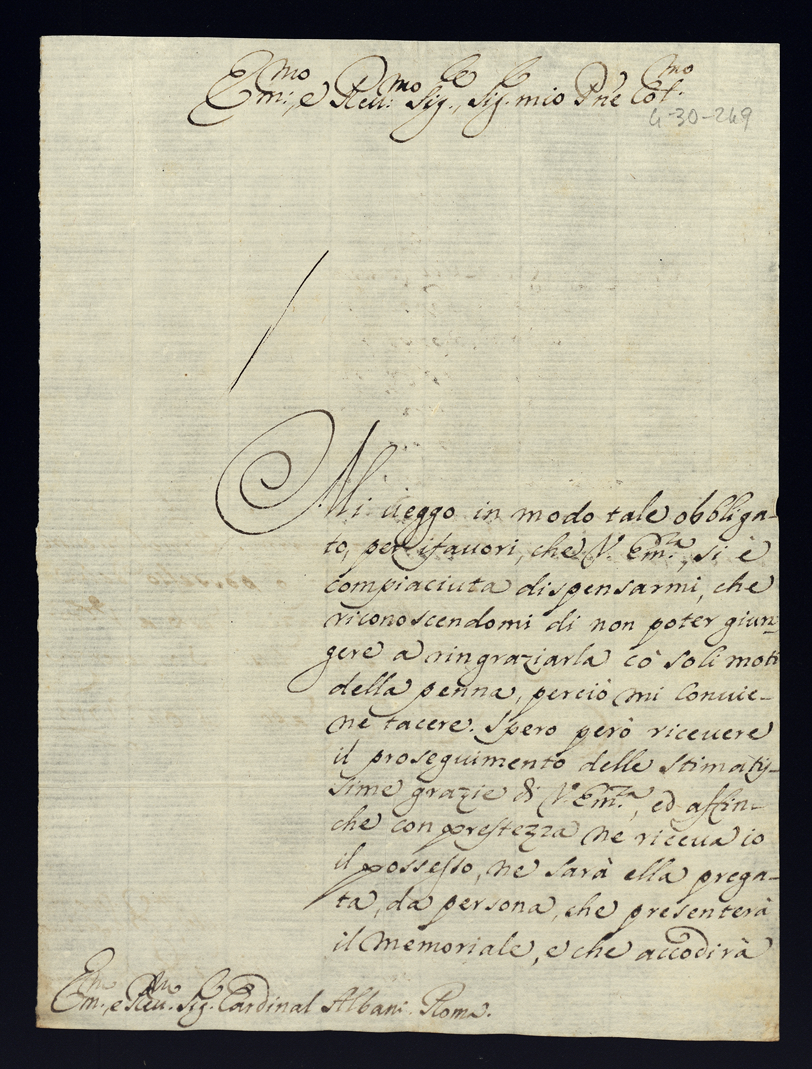 Em:mo, e Reu:mo Sig.re, Sig.re mio P̃ne Col.mo
4-30-249
Mi ueggo in modo tale obbliga-
to, per i fauori, che V. Em:za si è
compiaciuta dispensarmi, che
riconoscendomi di non poter giun-
gere a ringraziarla cò soli moti
della penna, perciò mi conuie-
ne tacere. Spero però riceuere
il proseguimento delle stimatis-
sime grazie di V. Em:za, ed affin-
che con prestezza ne riceua io
il possesso, ne sarà ella prega-
ta, da persona, che presenterà
il memoriale, e che accodirà
Em:mo, e Reu:mo Sig.r Cardinal Albani. Roma.